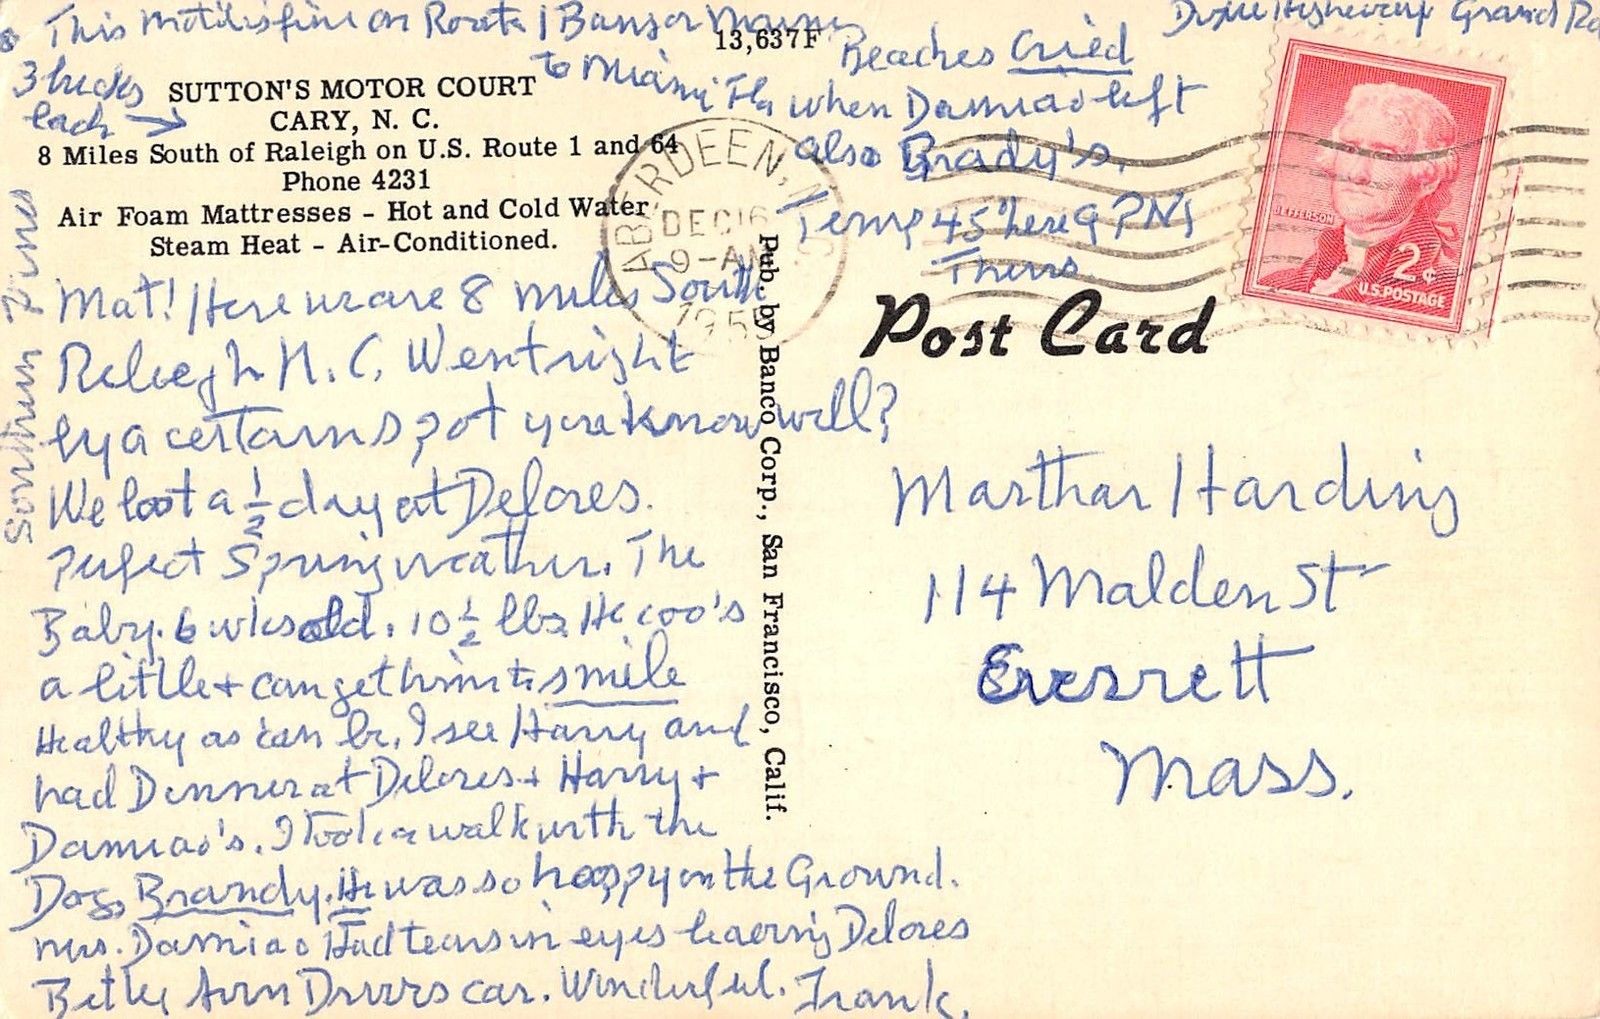 This Motel is fine on Route 1 Bangor Maine
to Miami Fla
3 bucks
each →
13,637F
SUTTON'S MOTOR COURT
CARY, N. C.
8 Miles South of Raleigh on U.S. Route 1 and 64
Phone 4231
Air Foam Mattresses - Hot and Cold Water
Steam Heat - Air-Conditioned.
Southern Pines
Mat! Here we are 8 miles South
Raleigh N. C. Went right
by a certain spot you know well?
We lost a ½ day at Delores.
Perfect Spring weather. The
Baby. 6 wks old. 10 ½ lbs He coo's
a little + can get him to smile
Healthy as can be. I see Harry and
had Dinner at Delores + Harry +
Damiao's. I took a walk with the
Dog, Brandy. He was so happy on the Ground.
Mrs. Damiao Had tears in eyes leaving Delores
Betty Ann Drives car. Wonderful. Frank.
Dixie Highway Grand
Beaches Cried
when Damiao left
also Brady's.
Temp 45° here 9 PM
Thurs
ABERDEEN, N.C.
DEC 16
9-AM
195
JEFFERSON
2¢
U.S. POSTAGE
Post Card
Pub. by Banco Corp., San Francisco, Calif.
Martha Harding
114 Malden St
Everett
Mass.